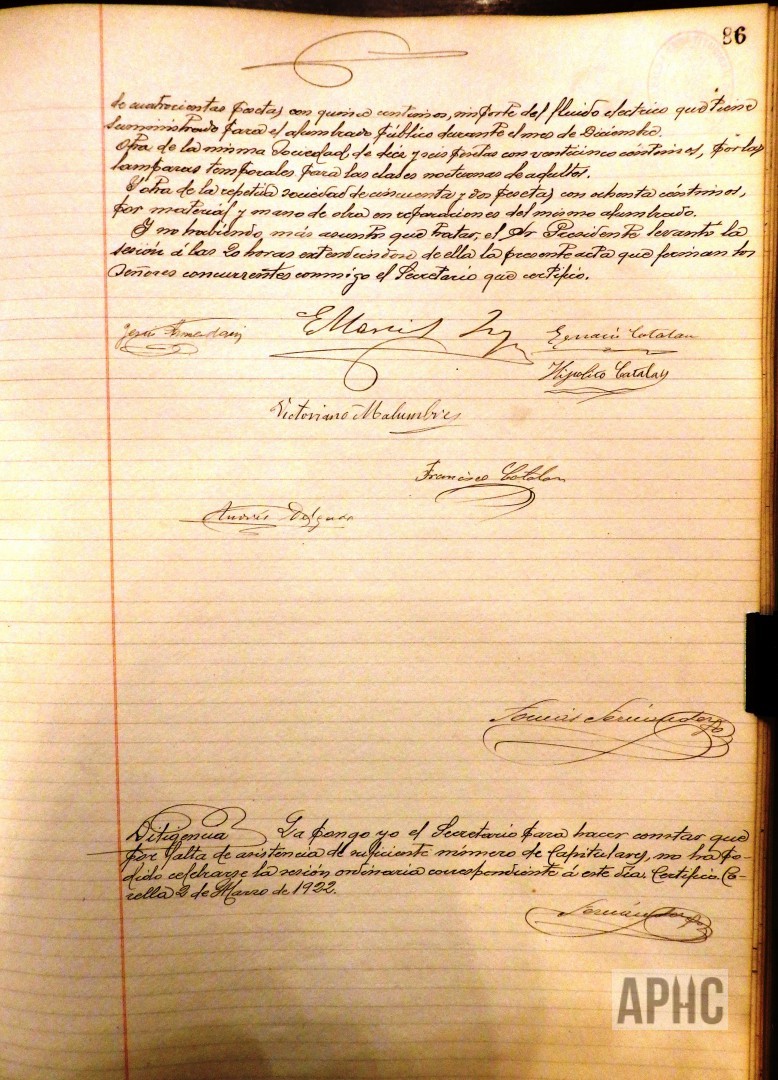 86
de cuatrocientas pesetas con quince centimos, importe del fluido electrico que tiene
suministrado para el alumbrado público durante el mes de Diciembre.
Otra de la misma Sociedad, de diez y seis pesetas con venticinco céntimos, por las
lamparas temporales para las clases nocturnas de adultos.
Y otra de la repetida sociedad de cincuenta y dos pesetas con ochenta céntimos,
por material y mano de obra en reparaciones del mismo alumbrado.
Y no habiendo, más asuntos que tratar, el Sr Presidente levantó la
sesión á las 20 horas extendiendose de ella la presente acta que firman los
Señores concurrentes conmigo el Secretario que certifico.
Ignacio Catalan
Hipolito Catalan
Victoriano Malumbres
Francisco Catalan
Andrés Delgado
Tomás
Diligencia La pongo yo el Secretario para hacer constar que
por falta de asistencia de suficiente número de Capitulares, no ha po-
dido celebrarse la sesión ordinaria correspondiente á este dia. Certifico. Co-
rella 2 de Marzo de 1922.
APHC